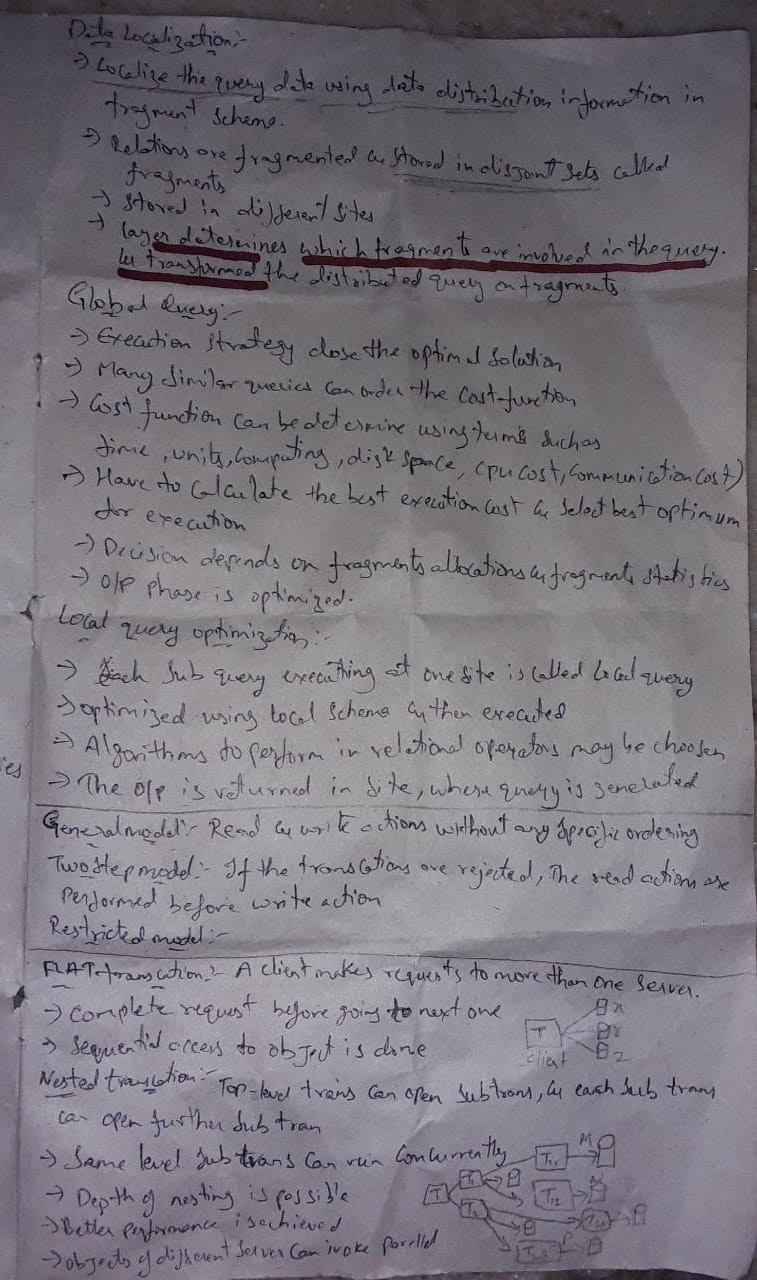 Data Localization:-
→ Localize the query data using data distribution information in
fragment scheme.
→ Relations are fragmented & stored in disjoint sets called
fragments
→ Stored in different sites
→ layer determines which fragments are involved in the query.
& transformed the distributed query on fragments.
Global Query:-
→ Execution strategy close the optimal solution
→ Many similar queries can order the cost function
→ Cost function can be determine using terms such as
time, units, computing, disk space, CPU cost, communication cost)
→ Have to calculate the best execution cost & select best optimum
for execution
→ Decision depends on fragments allocations & fragments statistics
→ O/P phase is optimized.
Local query optimization:-
→ Each sub query executing at one site is called local query
→ optimized using local schema & then executed
→ Algorithms to perform in relational operators may be choosen
→ The o/p is returned in site, where query is generated
ies
General model:- Read & write actions without any specific ordering
Two step model:- If the transcations are rejected, The read actions are
performed before write action
Restricted model:-
FLAT transcation:- A client makes requests to more than one server.
→ complete request before going to next one
→ sequential access to object is done
T
client
X
Y
Z
Nested transcation:- Top-level trans can open subtrans, & each sub trans
can open further sub tran
→ Same level sub trans can run concurrently
→ Depth of nesting is possible
→ Better performance is achieved
→ objects of different server can invoke parallel
T
T1
T2
T11
T12
M
N
P